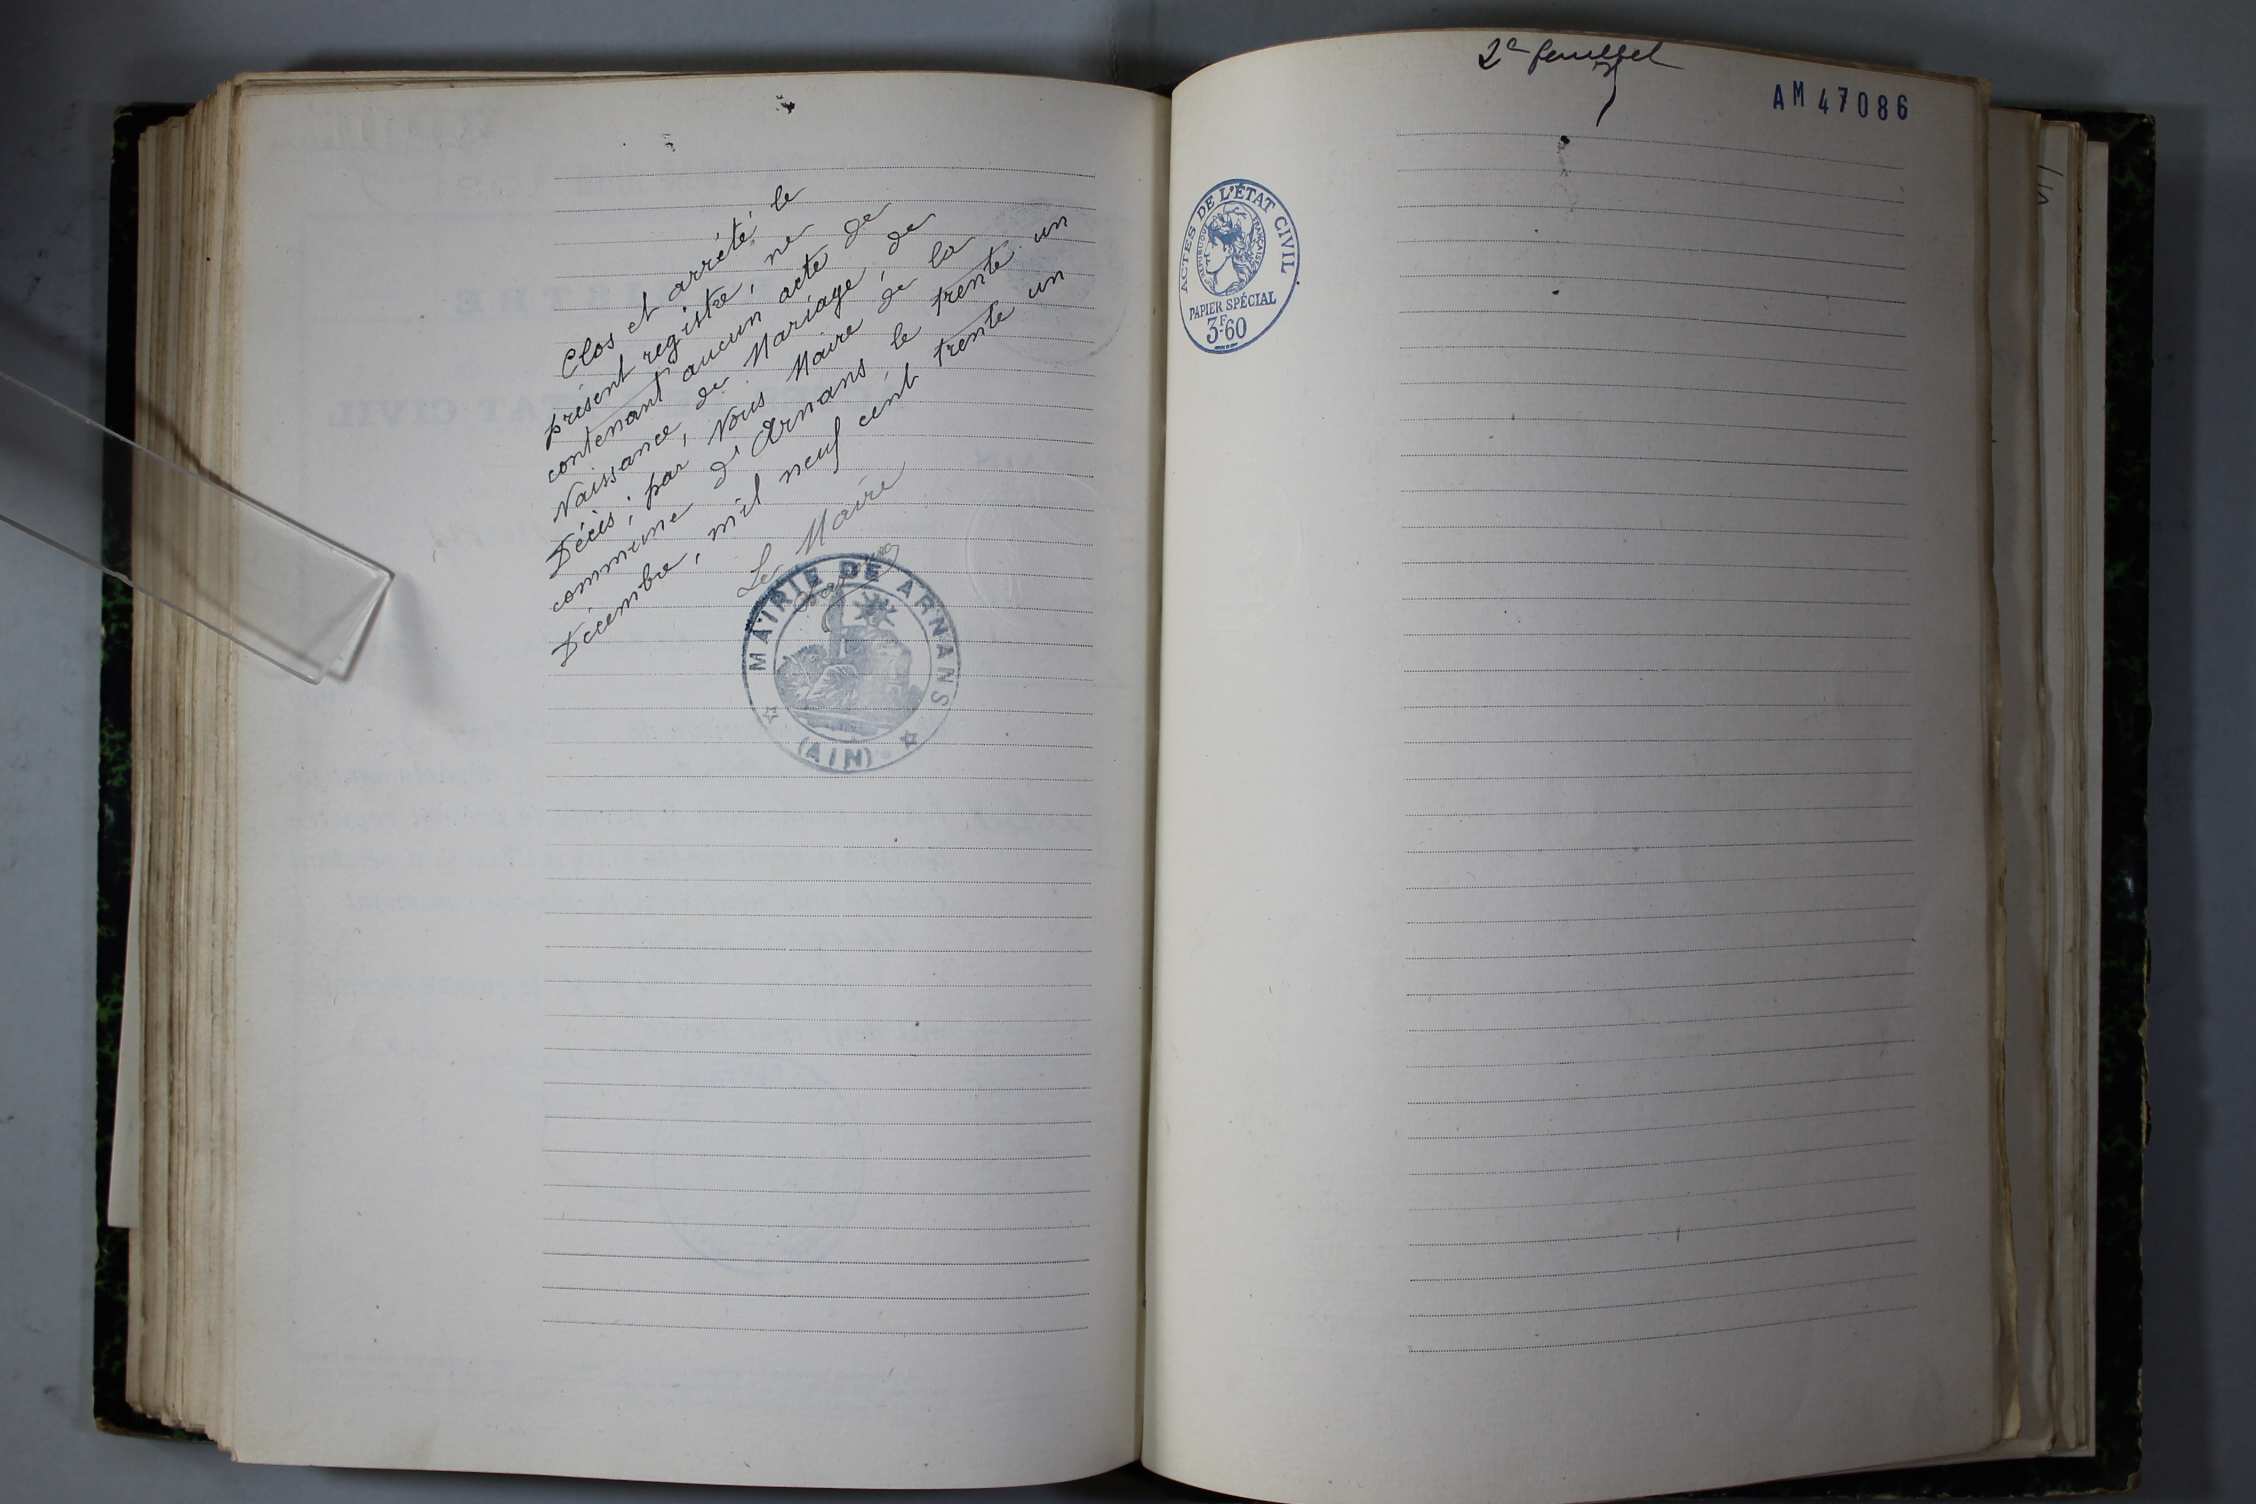 Clos et arrêté le
présent registre, ne
contenant aucun acte de
Naissance, de Mariage, de
Décès, par, Nous Maire de la
commune d'Arnans, le trente un
Décembre, mil neuf cent trente un
Le Maire
MAIRIE DE ARNANS
(AIN)
2e feuillet
AM 47086
ACTES DE L'ÉTAT CIVIL
RÉPUBLIQUE FRANÇAISE
PAPIER SPÉCIAL
3F.60